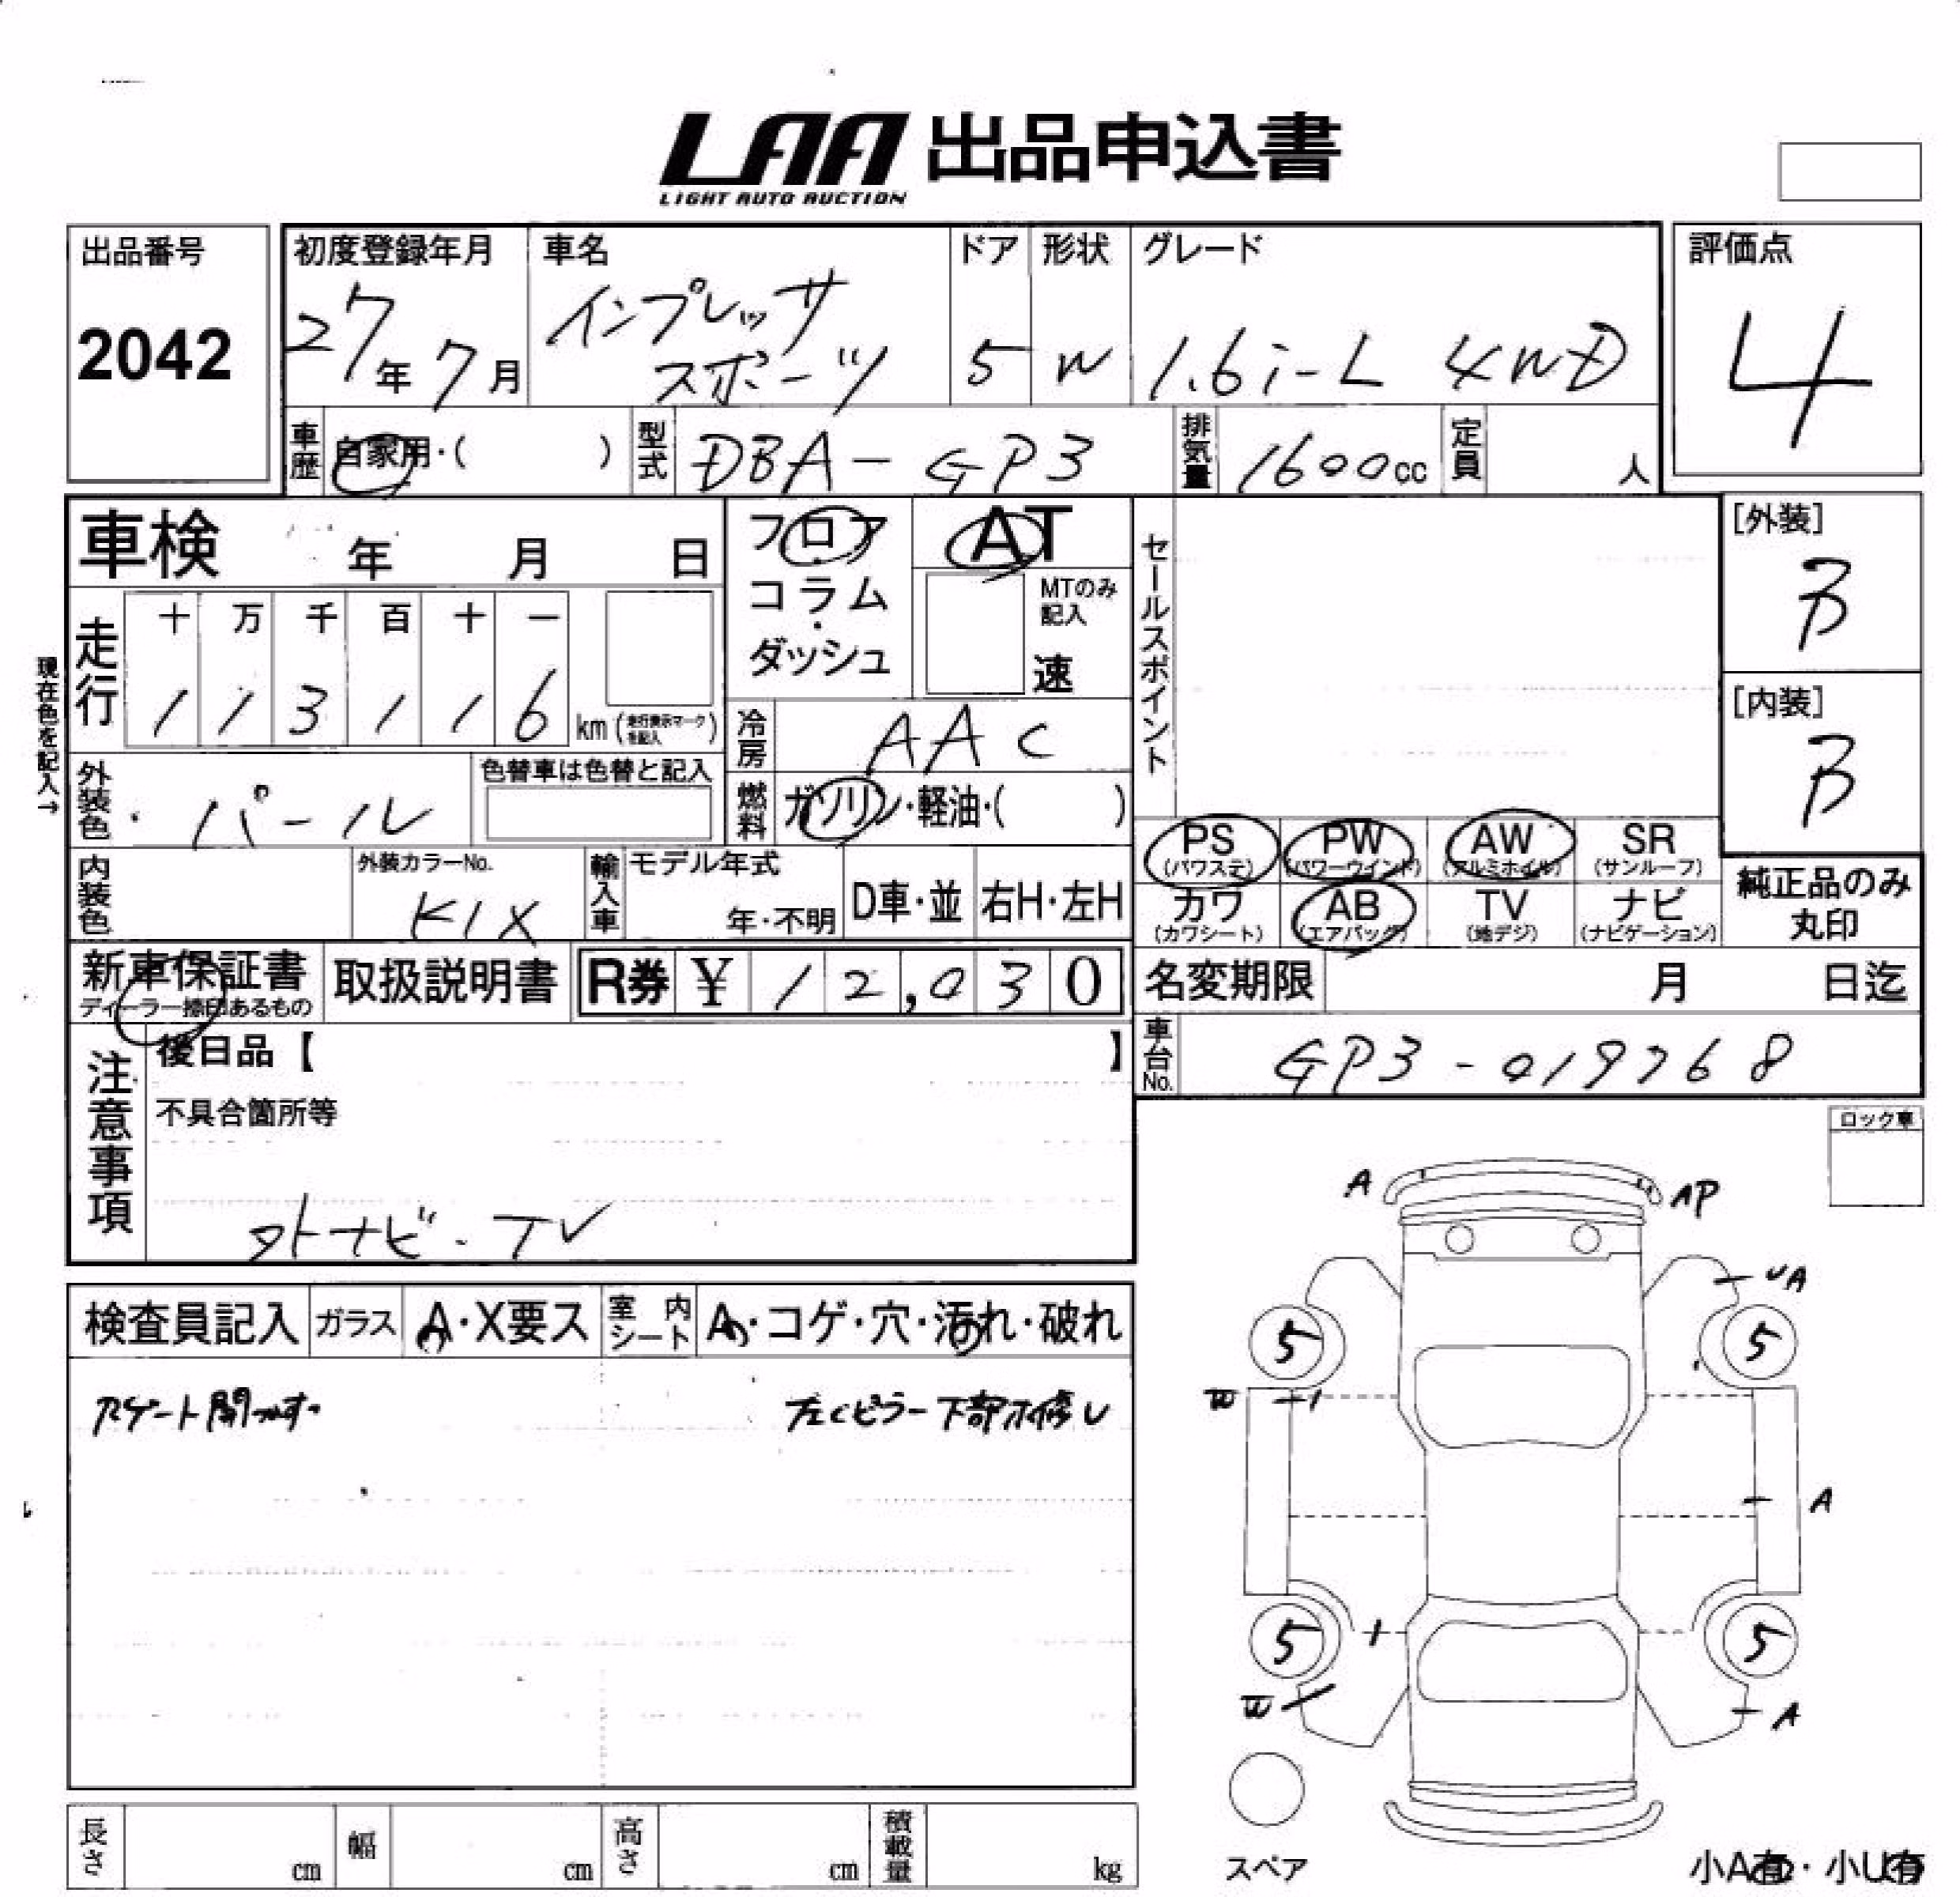 LAA 出品申込書
LIGHT AUTO AUCTION
出品番号
2042
初度登録年月
27年7月
車名
インプレッサ
スポーツ
ドア
5
形状
W
グレード
1.6i-L 4WD
評価点
4
車歴
自家用・( )
型式
DBA-GP3
排気量
1600cc
定員
人
車検 年 月 日
フロア
・
コラム
・
ダッシュ
AT
MTのみ
記入
速
セールスポイント
[外装]
B
[内装]
B
現在色を記入→
走行
十 万 千 百 十 一
1 1 3 1 1 6 km (走行表示マークを記入)
冷房
AAC
外装色
パール
色替車は色替と記入
燃料
ガソリン・軽油・( )
PS
(パワステ)
PW
(パワーウインド)
AW
(アルミホイル)
SR
(サンルーフ)
カワ
(カワシート)
AB
(エアバッグ)
TV
(地デジ)
ナビ
(ナビゲーション)
純正品のみ
丸印
内装色
外装カラーNo.
K1X
輸入車
モデル年式
年・不明
D車・並
右H・左H
新車保証書
ディーラー捺印あるもの
取扱説明書
R券 ¥ 12,030
名変期限 月 日迄
車台No.
GP3-019768
注意事項
後日品【 】
不具合箇所等
外ナビ-TV
ロック車
検査員記入
ガラス
A・X要ス
室内
シート
A・コゲ・穴・汚れ・破れ
左Cピラー下部ホ修レ
A
AP
UA
5
5
W
A
5
5
W
A
スペア
長さ
cm
幅
cm
高さ
cm
積載量
kg
小A有・小U有